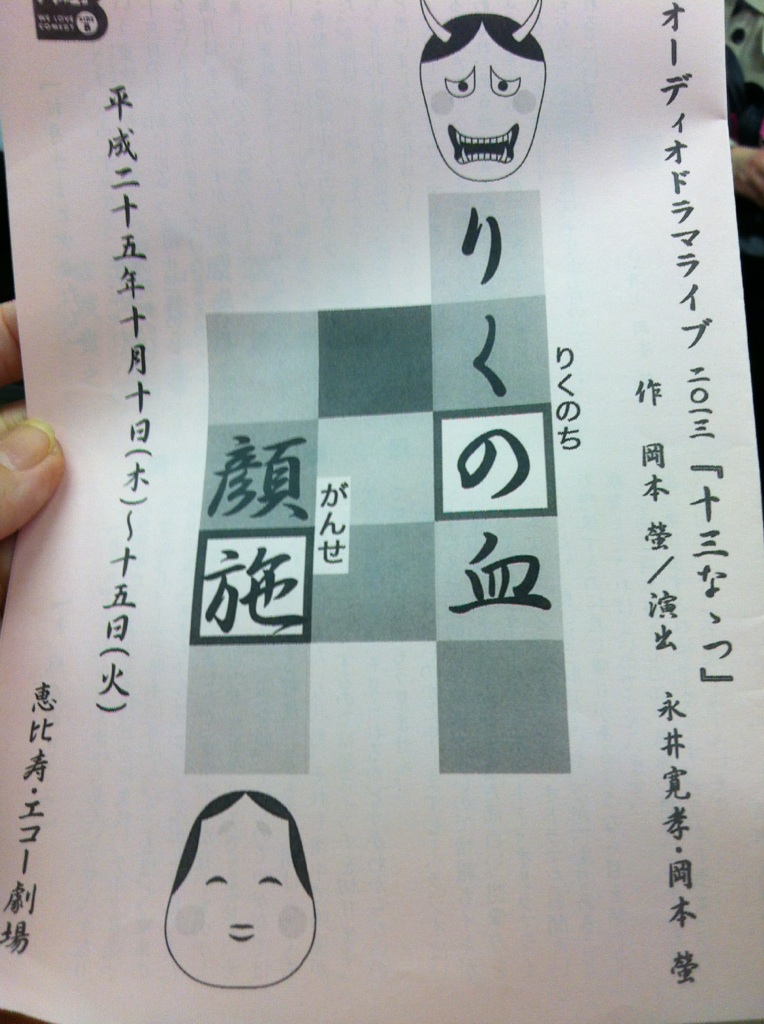 オーディオドラマライブ 二〇一三 『十三なゝつ』
作 岡本 螢/演出 永井寛孝・岡本 螢
りくのち
りくの血
がんせ
顔施
平成二十五年十月十日(木)~十五日(火)
恵比寿・エコー劇場
WE LOVE
COMEDY